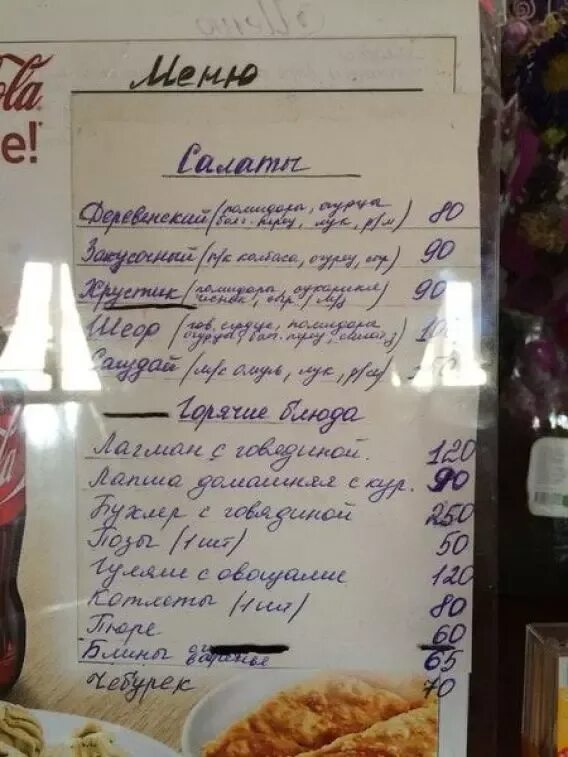 Cola
e!
Меню
Салаты
Деревенский (помидоры, огурцы болг. перец, лук, р/м) 80
Закусочный (п/к колбаса, огурец, сыр) 90
Хрустик (помидоры, сухарики чеснок, сыр, м/з) 90
(гов. сердце, помидоры, огурцы, бол. перец,
Сагудай (м/с омуль, лук, р/м)
Горячие блюда
Лагман с говядиной. 120
Лапша домашняя с кур. 90
Бухлер с говядиной 250
Позы (1 шт) 50
Гуляш с овощами 120
Котлеты (1 шт) 80
Пюре 60
Блины варенье 65
Чебурек 70